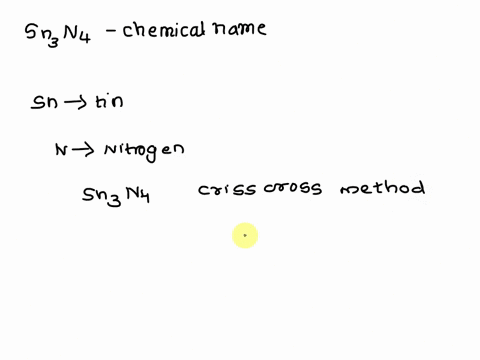 Sn₃N₄ - chemical name
Sn → tin
N → Nitrogen
Sn₃N₄ criss cross method